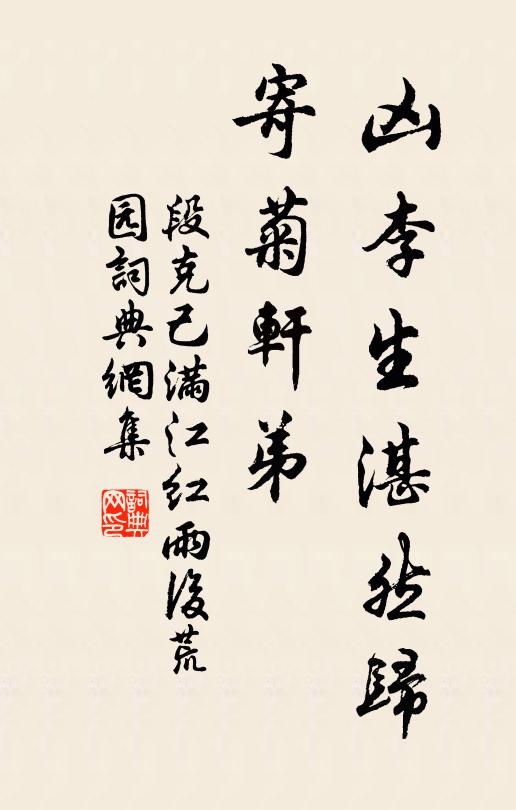 凶李生湛然歸
寄菊軒弟
段克己滿江红雨後荒
园詞典網集
詞典
网印